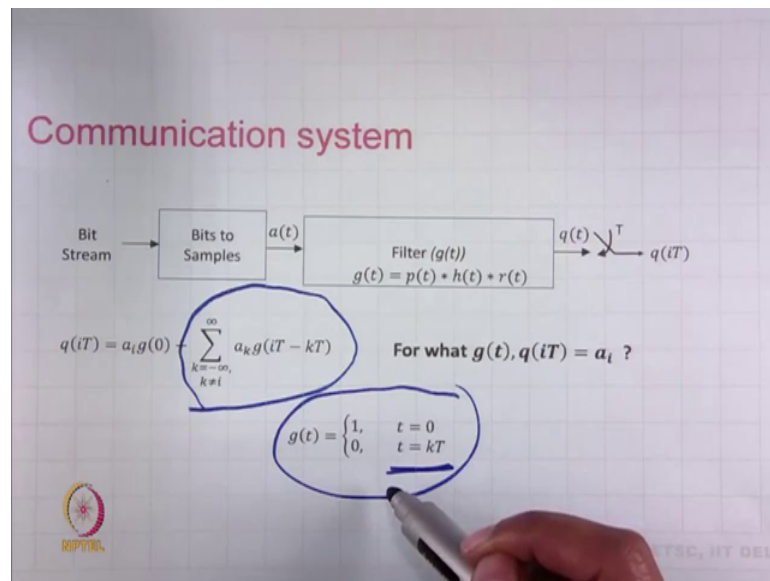 Communication system
Bit Stream
Bits to Samples
a(t)
Filter (g(t))
g(t) = p(t) * h(t) * r(t)
q(t)
T
q(iT)
q(iT) = a_i g(0) + \sum_{k=-∞, k≠i}^{∞} a_k g(iT − kT)
For what g(t), q(iT) = a_i ?
g(t) = {1, t = 0
0, t = kT
NPTEL
ETSC, IIT DEL